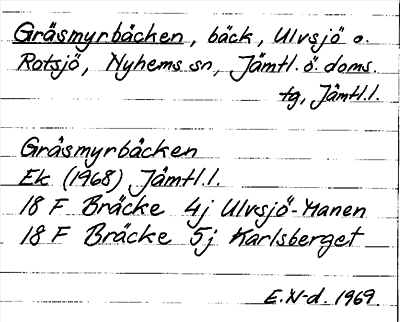 Gräsmyrbäcken, bäck, Ulvsjö o.
Rotsjö, Nyhems sn, Jämtl. ö. doms.
tg, Jämtl.l.
Gräsmyrbäcken
Ek (1968) Jämtl.l.
18 F Bräcke 4j Ulvsjö-Manen
18 F Bräcke 5j Karlsberget
E.N-d. 1969